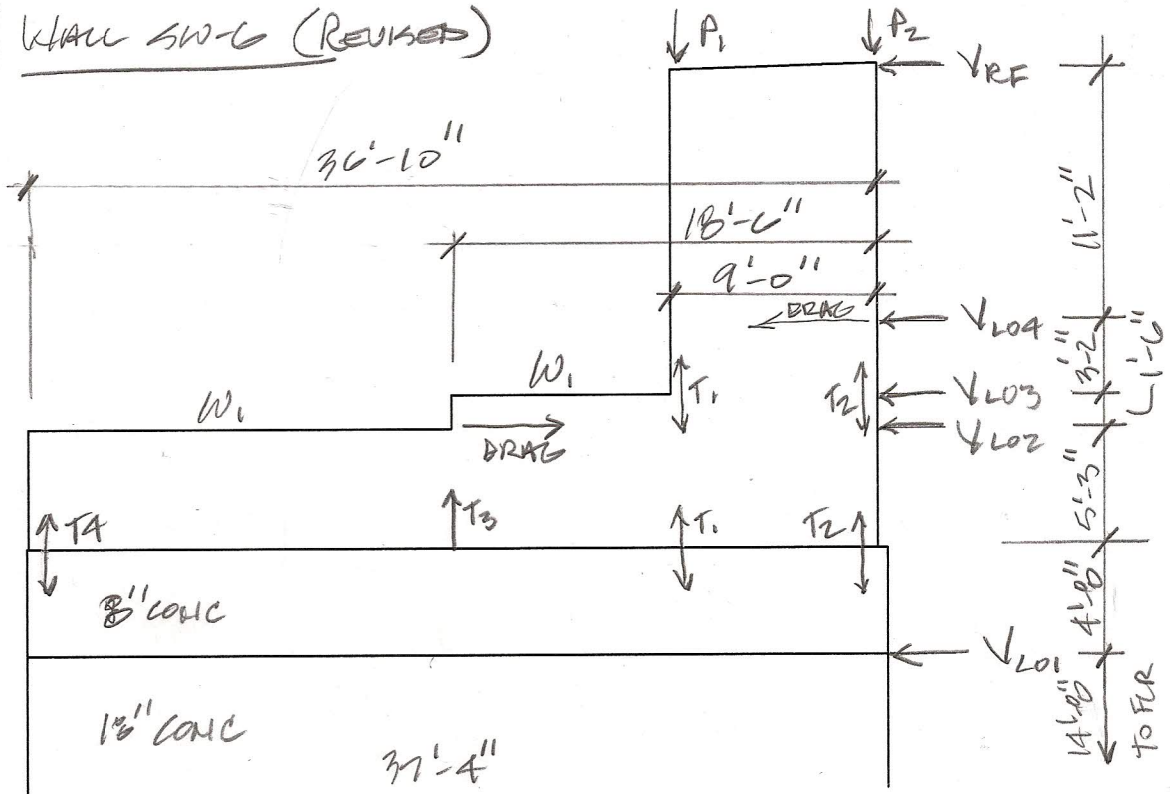 WALL SW-6 (REVISED)
P1
P2
VRF
36'-10"
18'-6"
9'-0"
11'-2"
DRAG
VL04
3'-2"
1'-6"
W1
W1
T1
T2
VL03
VL02
DRAG
5'-3"
T4
T3
T1
T2
8" CONC
4'-8"
VL01
18" CONC
37'-4"
14'-8"
TO FLR